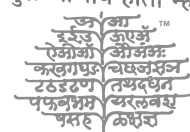 अ आ ™
इ ई उ ऊ ए
ऐ ओ औ ऑ अं अः
क ख ग घ ङ च छ ज झ ञ
ट ठ ड ढ ण त थ द ध न
प फ ब भ म य र ल व श
ष स ह ळ क्ष ज्ञ